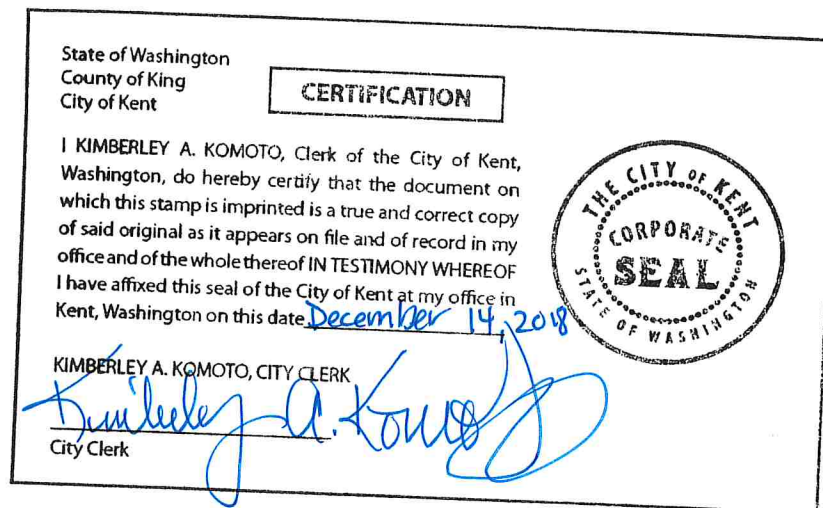 State of Washington
County of King
City of Kent
CERTIFICATION
I KIMBERLEY A. KOMOTO, Clerk of the City of Kent,
Washington, do hereby certify that the document on
which this stamp is imprinted is a true and correct copy
of said original as it appears on file and of record in my
office and of the whole thereof IN TESTIMONY WHEREOF
I have affixed this seal of the City of Kent at my office in
Kent, Washington on this date December 14, 2018
THE CITY OF KENT
CORPORATE
SEAL
STATE OF WASHINGTON
KIMBERLEY A. KOMOTO, CITY CLERK
Kimberley A. Komoto
City Clerk